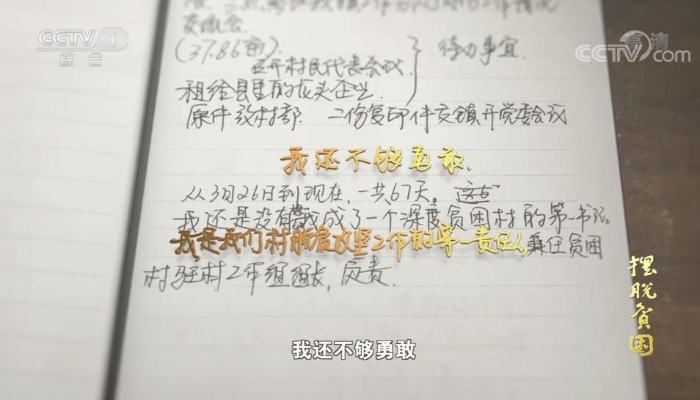 CCTV 1
综合
高清
CCTV.com
交流会.
(37.86亩).
召开村民代表会议.
待办事宜.
租给县里的龙头企业.
原件放村部 二份复印件交镇开党委会议
我还不够勇敢.
从3月26日到现在,一共67天.
我还是没有
成了一个深度贫困村的第一书记.
我是我们村脱贫攻坚工作的第一责任人,兼任贫困
村驻村工作组组长,
摆脱贫困
我还不够勇敢